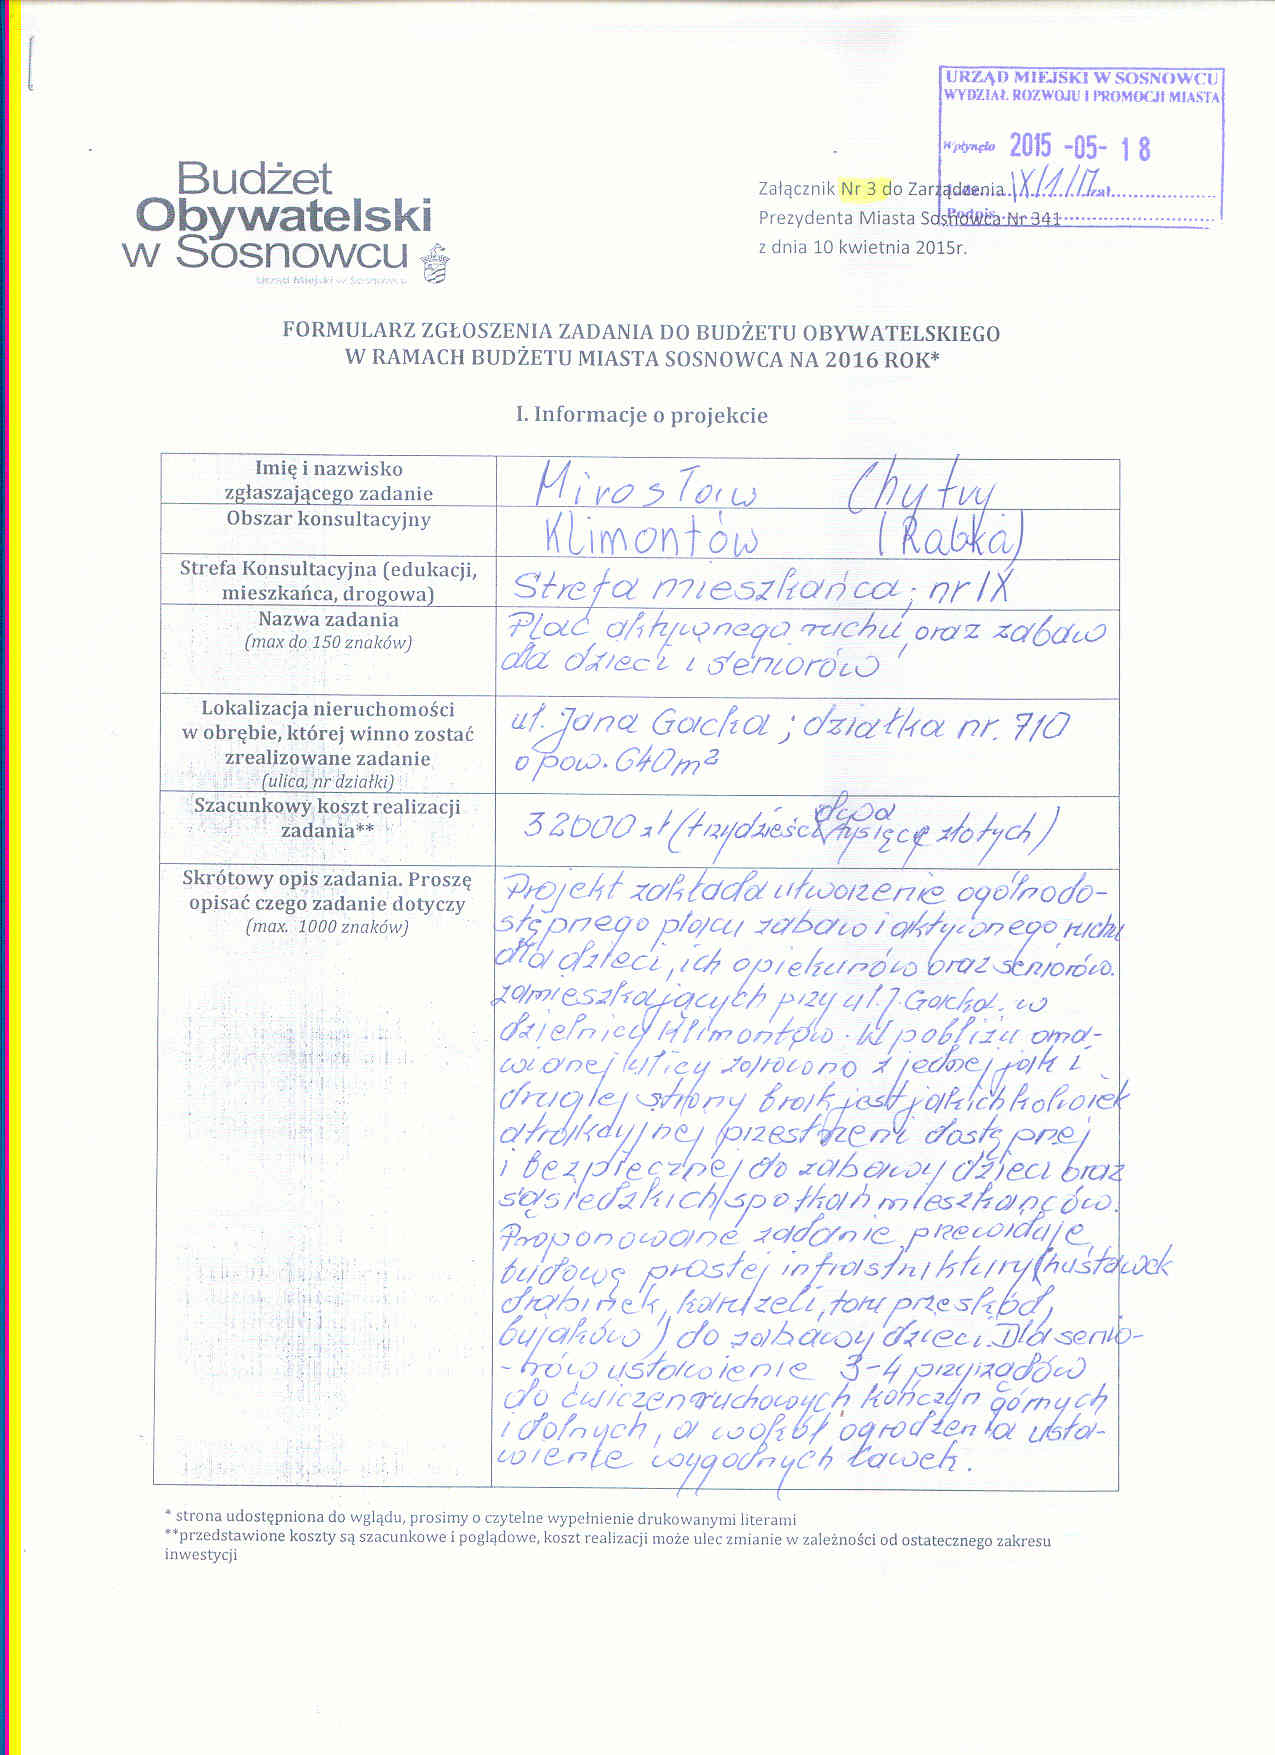 URZĄD MIEJSKI W SOSNOWCU
WYDZIAŁ ROZWOJU I PROMOCJI MIASTA
Wpłynęło 2015 -05- 18
Budżet
Obywatelski
w Sosnowcu
Urząd Miejski w Sosnowcu
Załącznik Nr 3 do Zarządzenia
Prezydenta Miasta Sosnowca Nr 341
z dnia 10 kwietnia 2015r.
FORMULARZ ZGŁOSZENIA ZADANIA DO BUDŻETU OBYWATELSKIEGO
W RAMACH BUDŻETU MIASTA SOSNOWCA NA 2016 ROK*
I. Informacje o projekcie
Imię i nazwisko
zgłaszającego zadanie
Mirosław Chytry
Obszar konsultacyjny
Klimontów (Rabka)
Strefa Konsultacyjna (edukacji,
mieszkańca, drogowa)
Strefa mieszkańca; nr IX
Nazwa zadania
(max do 150 znaków)
Plac aktywnego ruchu oraz zabaw
dla dzieci i seniorów
Lokalizacja nieruchomości
w obrębie, której winno zostać
zrealizowane zadanie
(ulica, nr działki)
ul. Jana Gacka ; działka nr. 710
o pow. 640m²
Szacunkowy koszt realizacji
zadania**
32000 zł (trzydzieści dwa tysiące złotych)
Skrótowy opis zadania. Proszę
opisać czego zadanie dotyczy
(max. 1000 znaków)
Projekt zakłada utworzenie ogólnodo-
stępnego placu zabaw i aktywnego ruchu
dla dzieci, ich opiekunów oraz seniorów.
zamieszkających przy ul. J. Gacka. w
dzielnicy Klimontów. W pobliżu oma-
wianej ulicy zarówno z jednej jak i
drugiej strony brak jest jakichkolwiek
atrakcyjnej przestrzeni dostępnej
i bezpiecznej do zabawy dzieci oraz
sąsiedzkich spotkań mieszkańców.
Proponowane zadanie przewiduje
budowę prostej infrastruktury (huśtawek
drabinek, karuzeli, toru przeszkód,
bujaków) do zabawy dzieci. Dla senio-
-rów ustawienie 3-4 przyrządów
do ćwiczeń ruchowych kończyn górnych
i dolnych, a wokół ogrodzenia usta-
wienie wygodnych ławek.
* strona udostępniona do wglądu, prosimy o czytelne wypełnienie drukowanymi literami
**przedstawione koszty są szacunkowe i poglądowe, koszt realizacji może ulec zmianie w zależności od ostatecznego zakresu
inwestycji